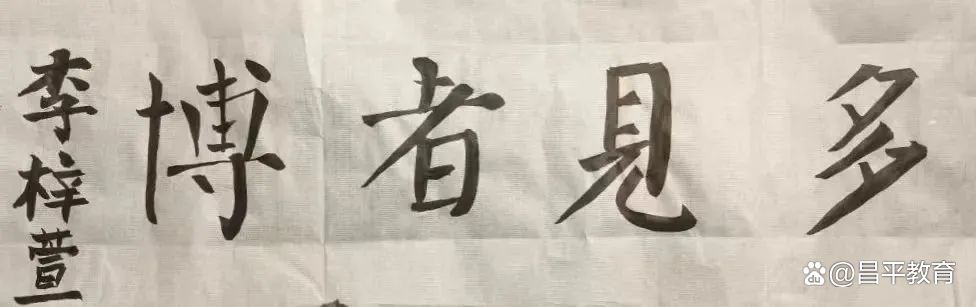 多見者博
李梓萱
@昌平教育